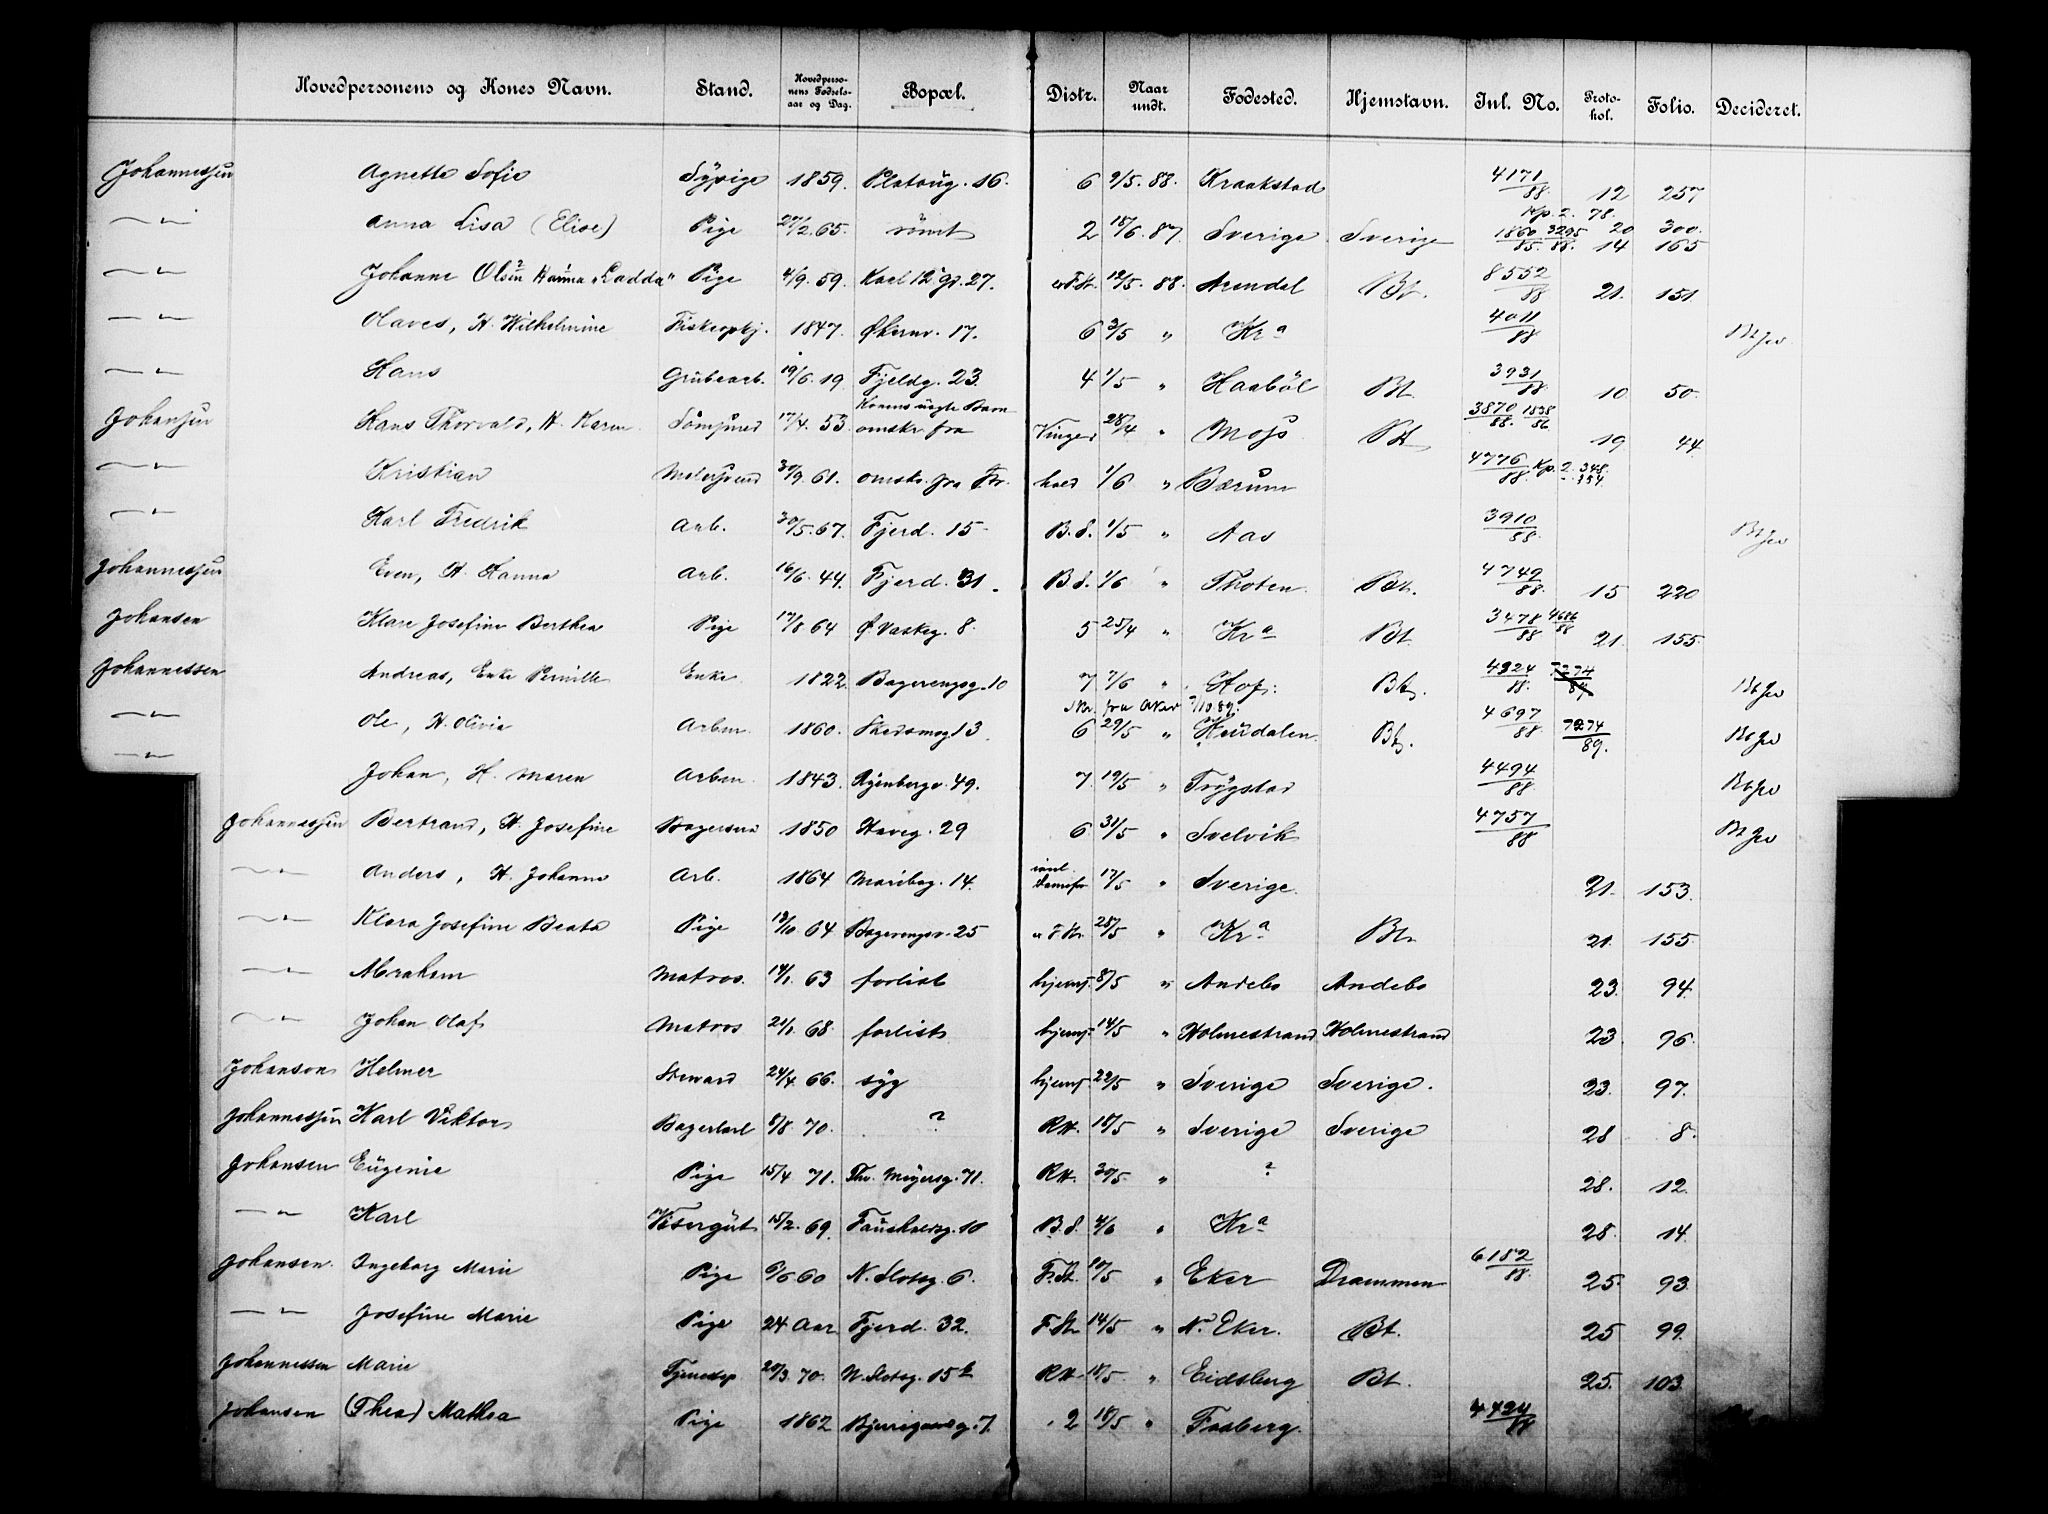 Hovedpersonens og Kones Navn. Stand. Hovedpersonens Fødselsaar og Dag. Bopæl. Distr. Naar undt. Fødested. Hjemstavn. Inl. No. Protokol. Folio. Decideret.
Johannessen Agnette Sofie Sypige 1859. Platoug. 16. 6 9/5. 88. Kraakstad 4171/88. 12 257
Kp. 2. 78.
— " — Anna Lisa (Elise) Pige 27/2. 65. rømt 2 18/6. 87. Sverige Sverige 1860/85. 3295/88. 20 300. 14 165
— " — Johanne Olsen Hanna "Ladda" Pige 4/9. 59. Karl 12 gd. 27. 12/5. 88. Arendal Bt. 8552/88 21. 151.
— " — Olaves, H. Wilhelmine Fiskeopkj. 1847. Økernv. 17. 6 3/5 " Kra 4011/88
— " — Hans Grubearb. 19/6. 19 Fjeldg. 23. 4 1/5 " Haabøl Bt. 3931/88 10 50.
Konens uægte Barn
Johansen Hans Thorvald, H. Karen Sømand 17/4. 53 omskr. fra Vinger 28/4 " Moss Bt 3870/88. 1838/86 19 44.
— " — Kristian Malersvend 30/9. 61. omskr. fra Fr. hald 1/6 " Bærum 4776/88. Kp. 2. 348. 354.
— " — Karl Fredrik Arb. 30/5. 67. Fjerd. 15 B. S. 1/5 " Aas 3910/88.
Johannessen Even, H. Hanna Arb. 16/6. 44. Fjerd. 31. B S. 1/6 " Thoten Bt. 4749/88. 15 220
Johansen Klara Josefine Berthea Pige 17/8 64 Ø Vaskeg. 8. 5 25/4 " Kra Bt 3478/88 4686/88 21. 155.
Johannessen Andreas, Enke Pernille Enke 1822. Bagerengsg. 10 7 7/6 " Hof. Bt. 4924/88. 7274/89
Skr. fra Aker 7/10.89.
— " — Ole, H. Olivia Arbm. 1860. Skedsmog 13. 6 29/5 " Hurdalen Bt. 4697/88 7274/89.
— " — Johan, H. Maren Arbm. 1843. Ryenbergv. 49. 7. 19/5 " Trøgstad 4494/88.
Johannessen Bertrand, H. Josefine Bagersv. 1850 Haveg. 29 6 31/5 " Svelvik 4757/88
— " — Anders, H. Johanne Arb. 1864 Maribog. 14. 17/5 " Sverige. 21. 153.
— " — Klara Josefine Beata Pige 13/10 64 Bagerengsv. 25 28/5 " Kra Bt. 21. 155.
— " — Abraham Matros. 14/1. 63 forlist hjems. 8/5 " Andebo Andebo 23. 94.
— " — Johan Olaf Matros 21/1. 68. forlist hjems. 14/5 " Holmestrand Holmestrand 23. 96.
Johanson Helmer Steward 24/4. 66. syg hjems. 22/5 " Sverige Sverige. 23. 97.
Johannessen Karl Viktor Bagerlærl 5/8. 70. ? RH. 18/5 " Sverige Sverige 28 8.
Johansen Eugenie Pige 15/4 71. Thv. Meyersg. 71. RH. 30/5 " ? 28. 12.
— " — Karl Visergut 15/2. 69. Fauskaldsg. 10 B. S. 4/6 " Kra 28. 14.
Johansen. Ingeborg Marie Pige 6/6 60 N. Slotsg. 6. F. St. 10/5 " Eker Drammen 6182/88. 25. 93.
— " — Josefine Marie Pige 24 Aar Fjerd. 32. F. St 14/5 " N. Eker. Bt. 25 99.
Johannessen Marie Tjenestep 20/3. 70. N. Slotsg. 15 b RH. 18/5. " Eidsberg Bt. 25. 103.
Johansen (Thea) Mathea Pige 1862 Bjerregaardsg. 7. 2 18/5 " Faaberg. 4424/88